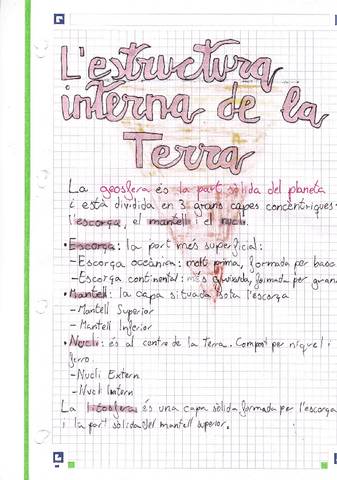 L'estructura
interna de la
Terra
La geosfera és la part sòlida del planeta
i està dividida en 3 grans capes concèntriques:
l'escorça, el mantell i el nucli.
• Escorça: la part més superficial:
- Escorça oceànica: molt prima, formada per basa
- Escorça continental: més gruixuda, formada per gran
• Mantell: la capa situada sota l'escorça
- Mantell Superior
- Mantell Inferior
• Nucli: és al centre de la Terra. Compost per níquel i
ferro.
- Nucli Extern
- Nucli Intern
La litosfera és una capa sòlida formada per l'escorça
i la part sòlida del mantell superior.